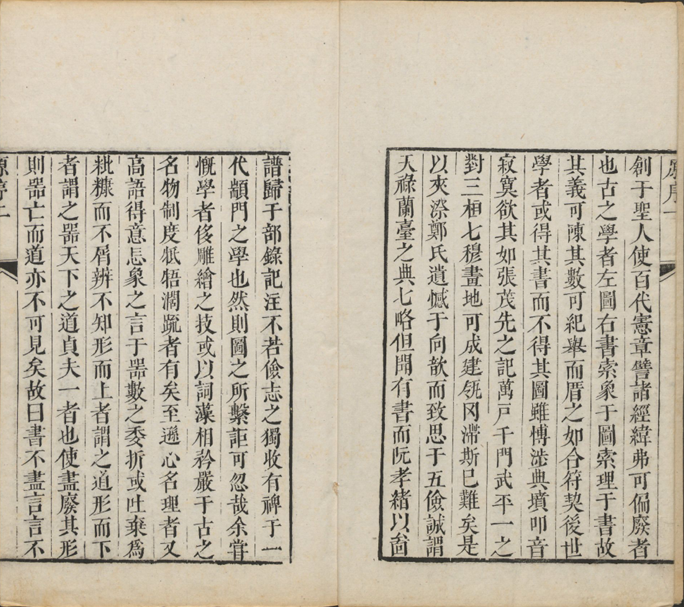 原序一
創于聖人使百代憲章譬諸經緯弗可偏廢者
也古之學者左圖右書索象于圖索理于書故
其義可陳其數可紀舉而厝之如合符契後世
學者或得其書而不得其圖雖博涉典墳叩音
寂寞欲其如張茂先之記萬戸千門武平一之
對三桓七穆畫地可成建瓴罔滯斯已難矣是
以夾漈鄭氏遺憾于向歆而致思于五儉誠謂
天祿蘭臺之典七略但聞有書而阮孝緒以啚
譜歸于部錄記注不若儉志之獨收有裨于一
代顓門之學也然則圖之所繫詎可忽哉余甞
慨學者侈雕繪之技或以詞藻相矜嚴于古之
名物制度牴牾濶疏者有矣至遜心名理者又
高語得意忘象之言于器數之委折或吐棄為
粃糠而不屑辨不知形而上者謂之道形而下
者謂之器天下之道貞夫一者也使盡廢其形
則器亡而道亦不可見矣故曰書不盡言言不
原序二